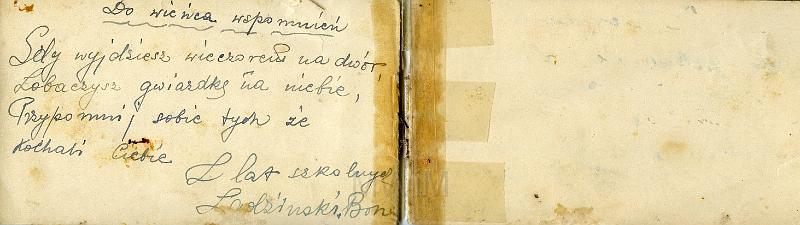 Do wieńca wspomnień
Gdy wyjdziesz wieczorem na dwór
Zobaczysz gwiazdkę na niebie,
Przypomnij sobie tych że
kochali Ciebie
Z lat szkolnych